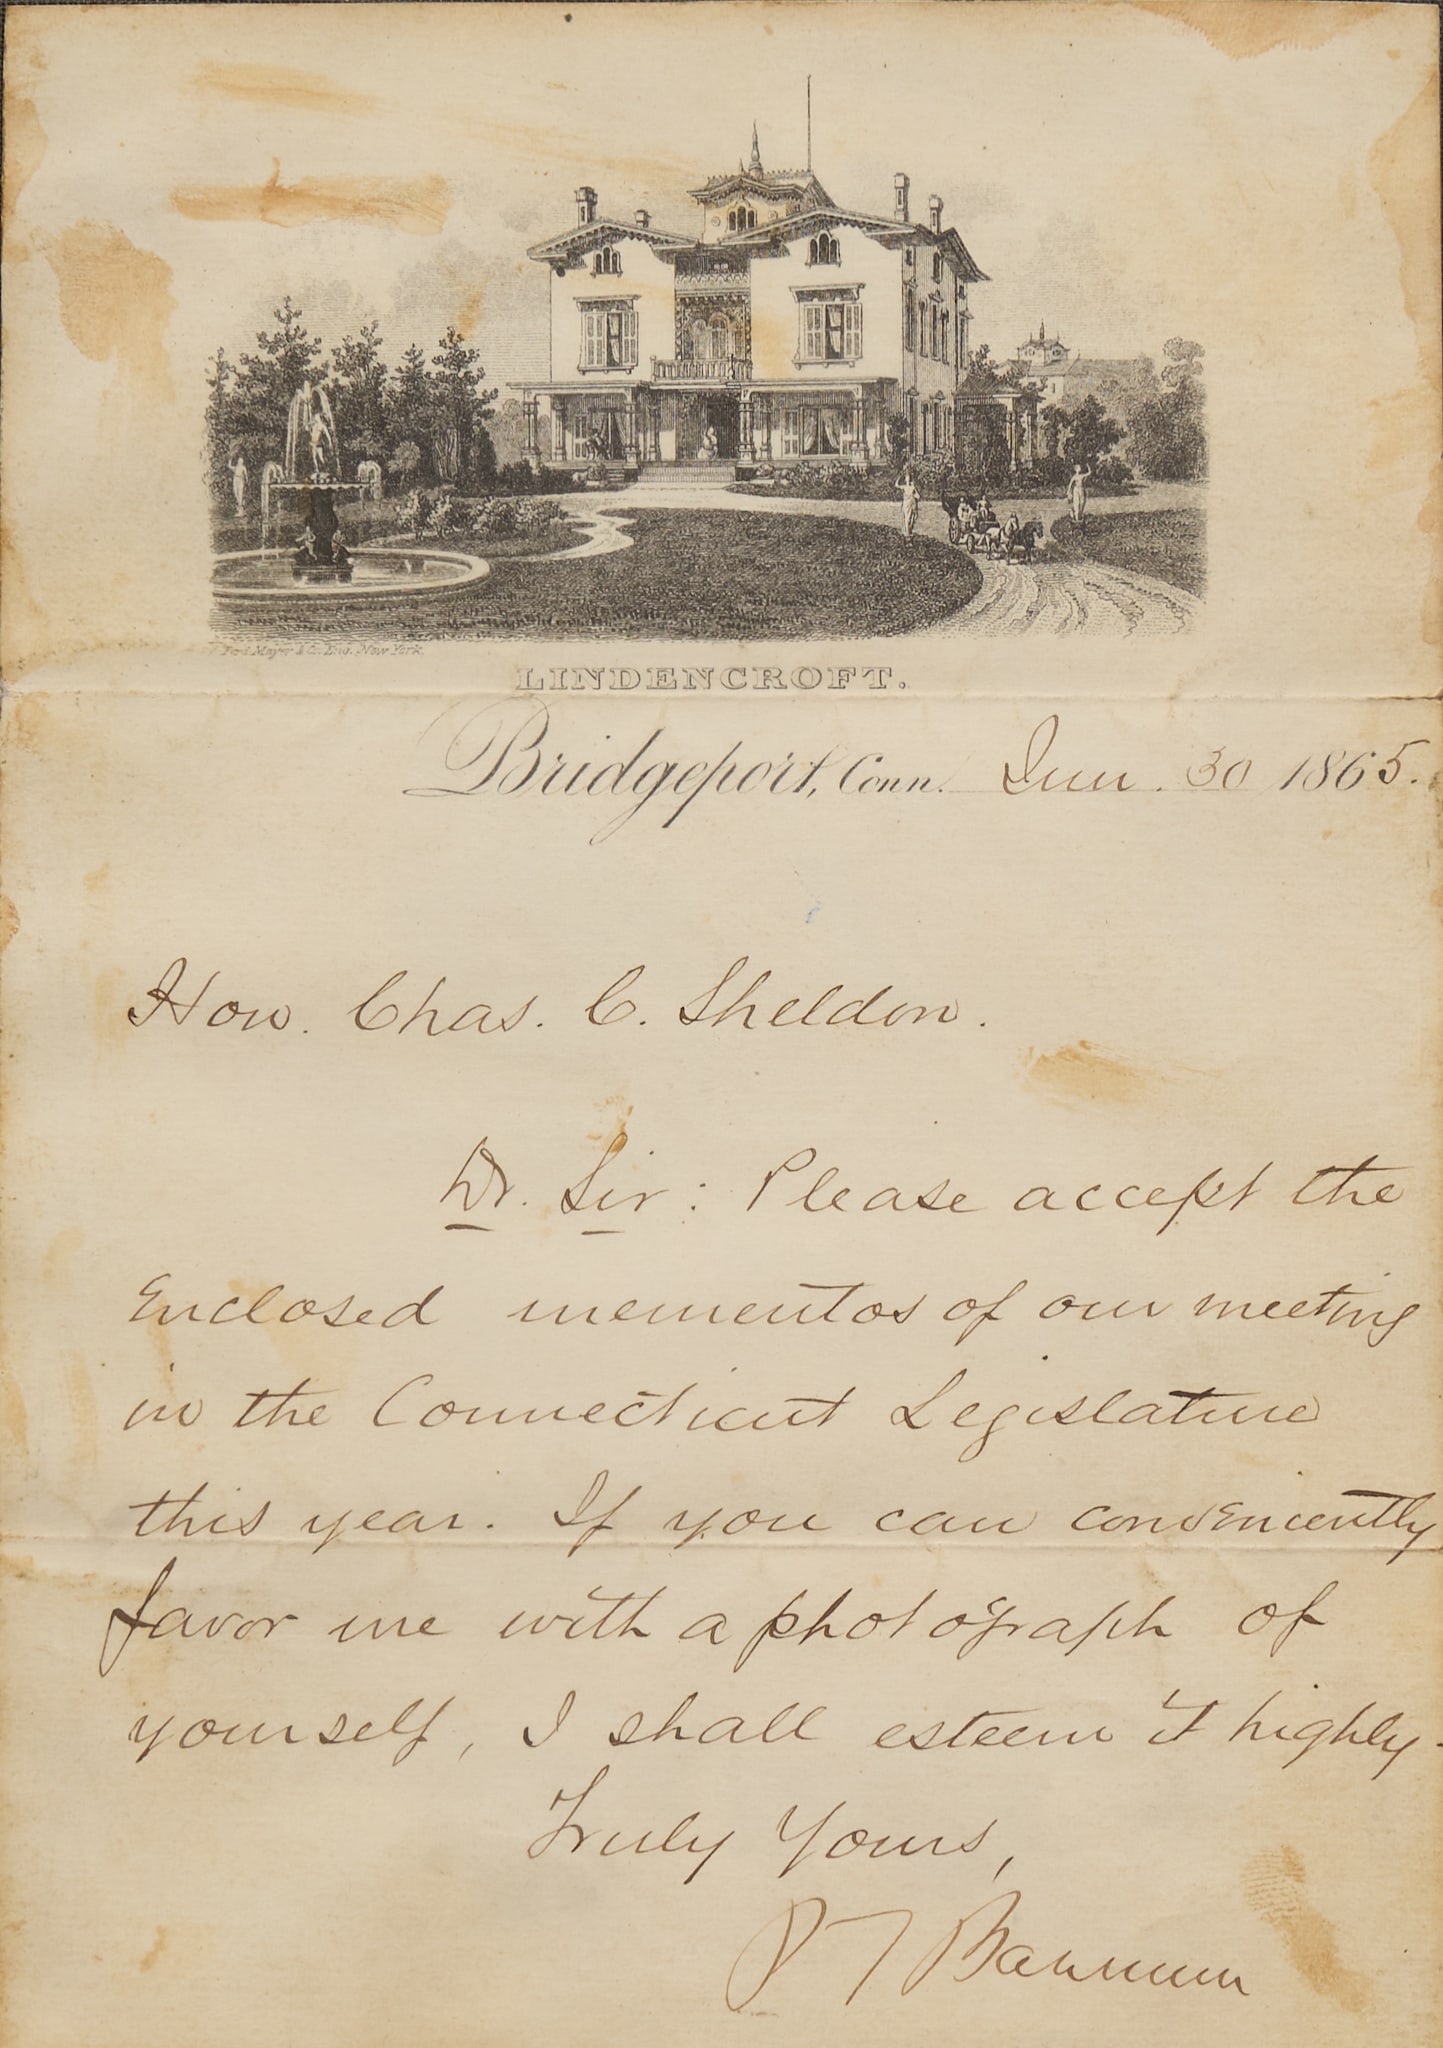 Ferd. Mayer & Co. Eng. New York.
LINDENCROFT.
Bridgeport, Conn. Jun. 30 1865.
Hon. Chas. C. Sheldon.
Dr. Sir: Please accept the
Enclosed mementos of our meeting
in the Connecticut Legislature
this year. If you can conveniently
favor me with a photograph of
yourself, I shall esteem it highly.
Truly Yours,
P T Barnum